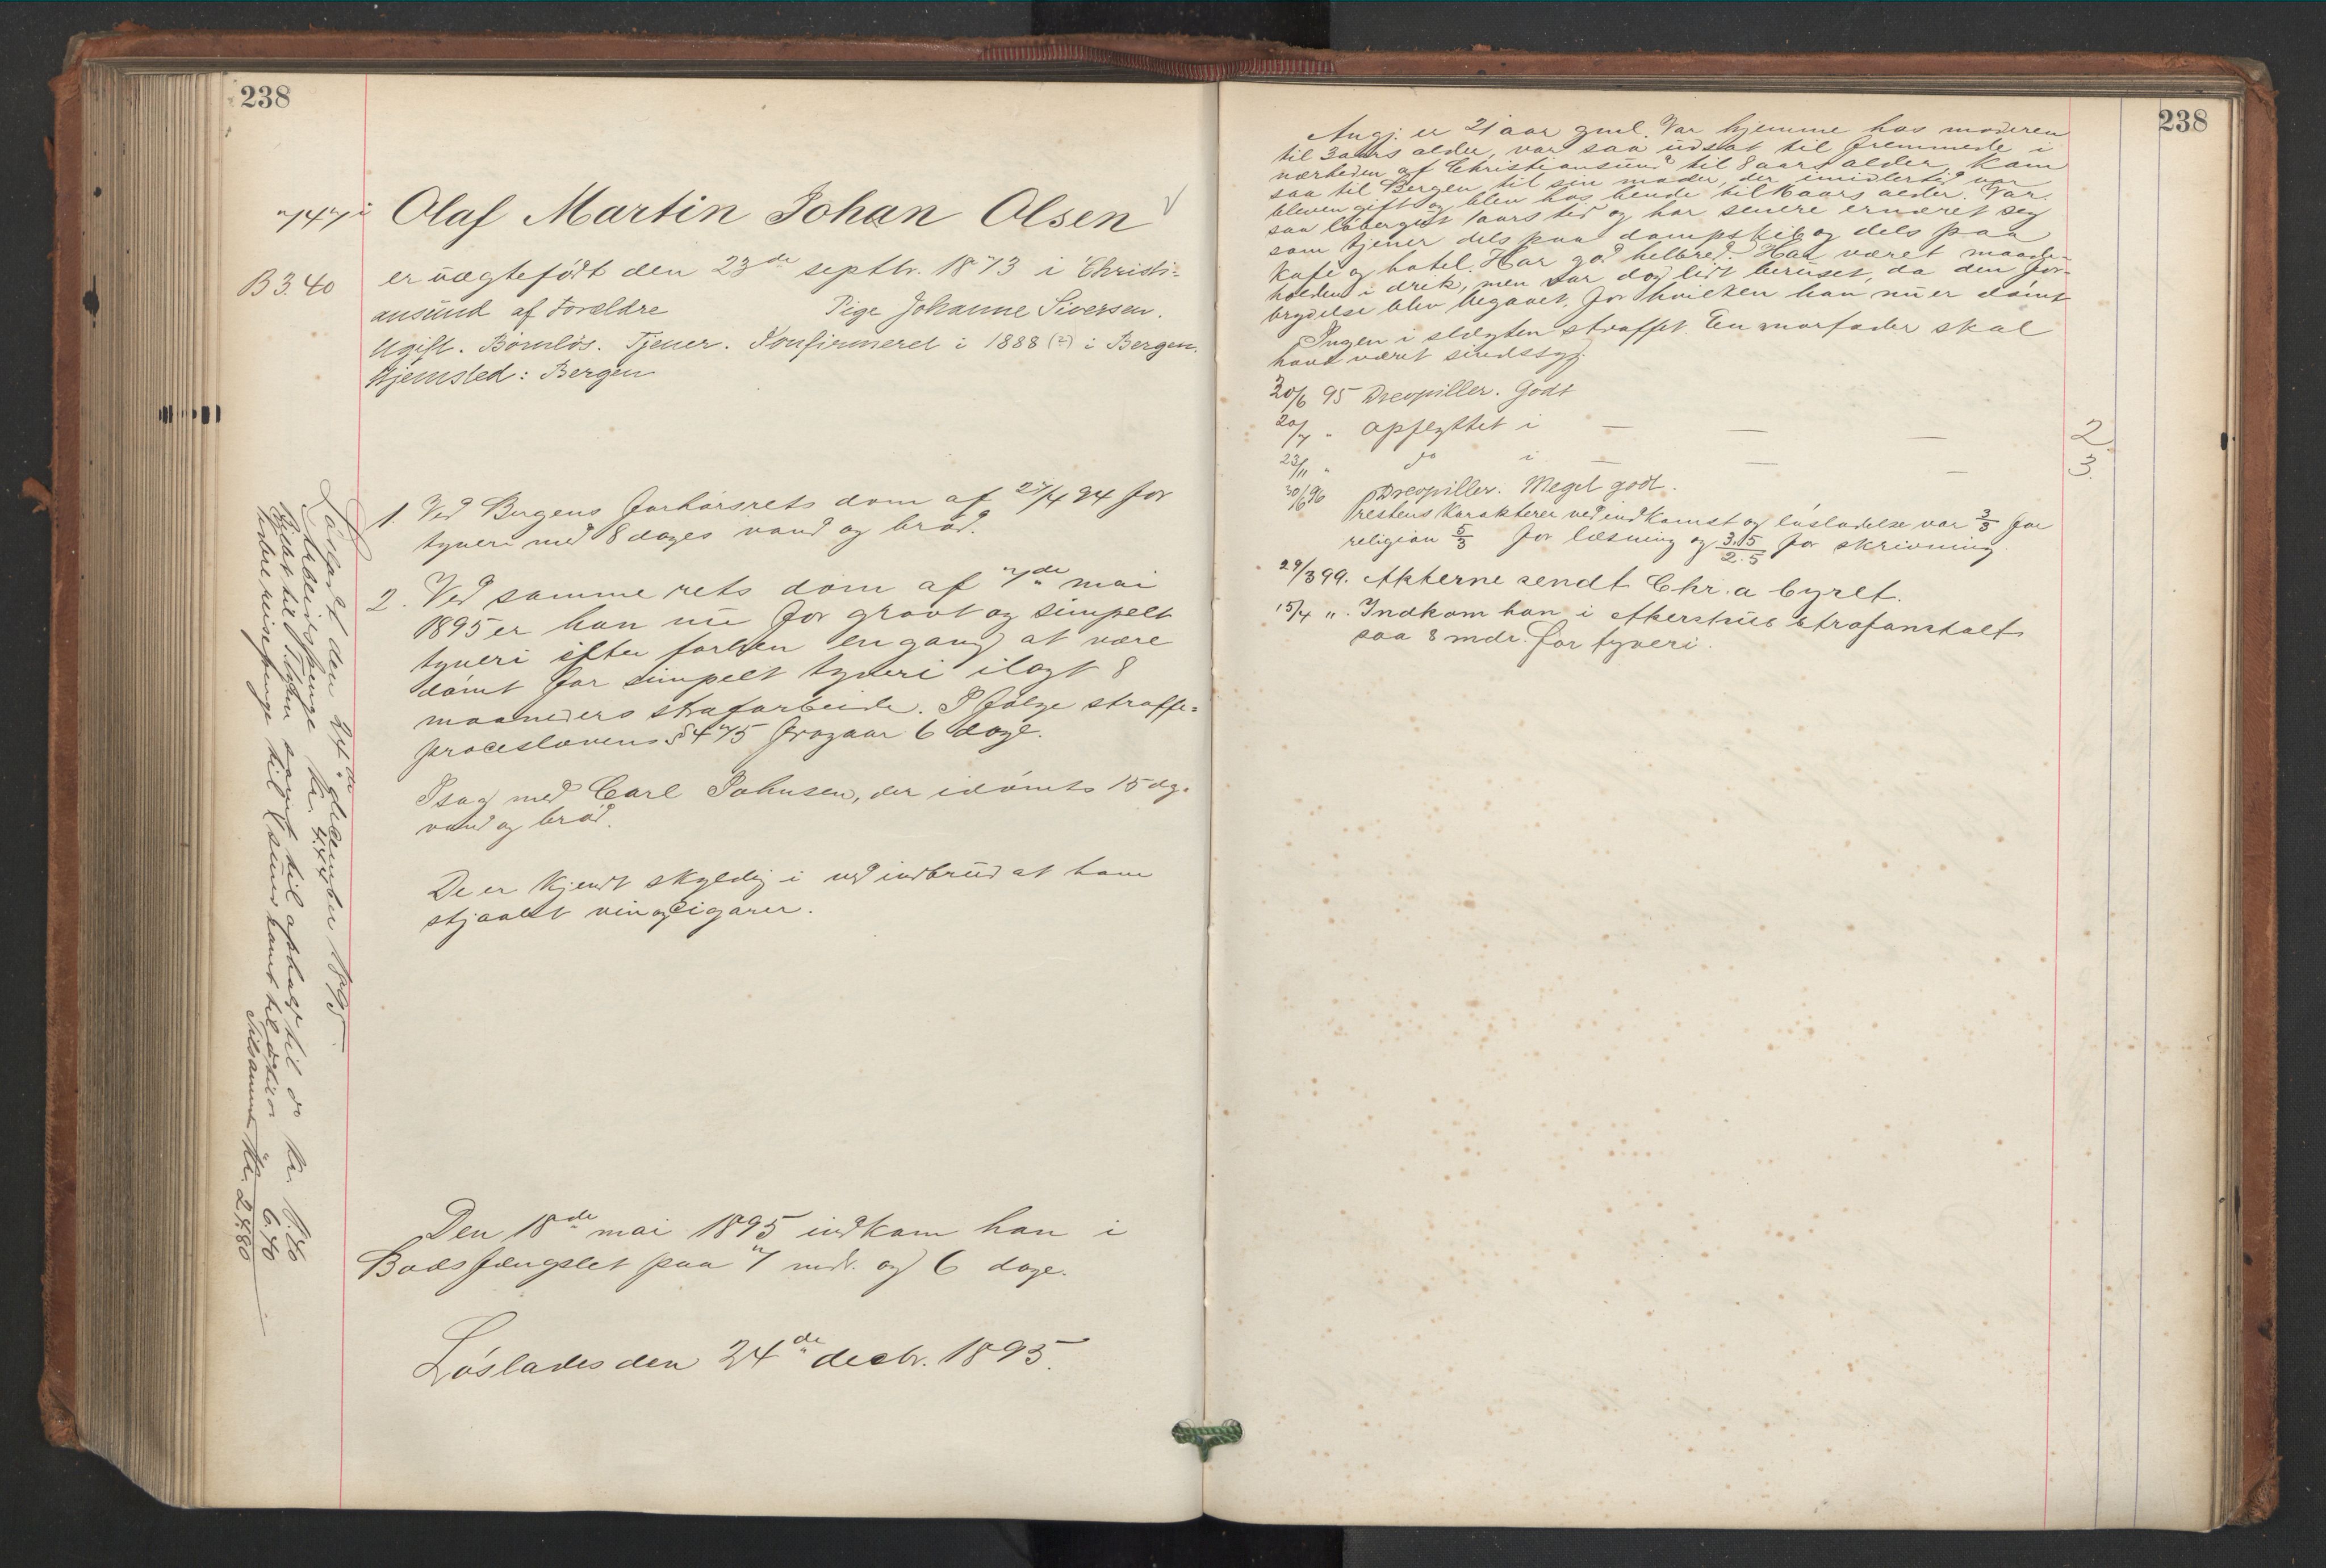 238
747
Olaf Martin Johan Olsen
B 3.40
er uægtefødt den 23de septbr. 1873 i Christi-
ansund af Forældre Pige Johanne Siversen.
Ugift. Børnløs. Tjener. Konfirmeret i 1888 (?) i Bergen.
Hjemsted: Bergen
1. Ved Bergens forhørsrets dom af 27/4 94 for
tyveri med 8 dages vand og brød.
2. Ved samme rets dom af 7de mai
1895 er han nu for grovt og simpelt
tyveri efter forhen en gang at være
dømt for simpelt tyveri ilagt 8
maaneders strafarbeide. I følge straffe-
proceslovens § 475 fragaar 6 dage.
I sag med Carl Johnsen, der idømts 15 dg.
vand og brød.
De er kjendt skyldig i ved indbrud at have
stjaalet vin og cigarer.
Den 18de mai 1895 indkom han i
Bodsfængslet paa 7 mdr. og 6 dage.
Løslades den 24de decbr. 1895.
Løsladt den 24de december 1895.
Arbeidspenge kr. 9.44
til ophold til do kr.
reisepenge til 6.40
Tilsammen kr. 24.80
238
Angj. er 21 aar gml. Var hjemme hos moderen
til 3 aars alder, var saa udsat til fremmede i
nærheden af Christiansund til 8 aars alder, kom
saa til Bergen til sin moder, der imidlertid var
bleven gift og blev hos hende til aars alder. Var
saa løbergut 1 aars tid og har senere ernæret seg
som tjener dels paa dampskib og dels paa
kafe og hotel. Har god helbred. Har været maade-
holden i drik, men var dog lidt beruset, da den for-
brydelse blev begaaet, for hvilken han nu er dømt
Ingen i slægten straffet. En morfader skal
have været sindssyg.
30/6 95 Dreopiller. Godt
20/7 " Opflyttet i — — — 2.
23/11 " do i — — — 3.
30/6 96 Dreopiller. Meget godt.
Prestens karakterer ved indkomst og løsladelse var 3/3 for
religion 5/3 for læsning og 3.15/2.5 for skrivning.
29/3 99. Akterne sendt Chr.a byret.
15/4 ". Indkom han i Akershus strafanstalt
paa 8 mdr. for tyveri.